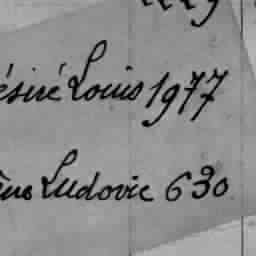 ésiré Louis 1977
Ludovic 630